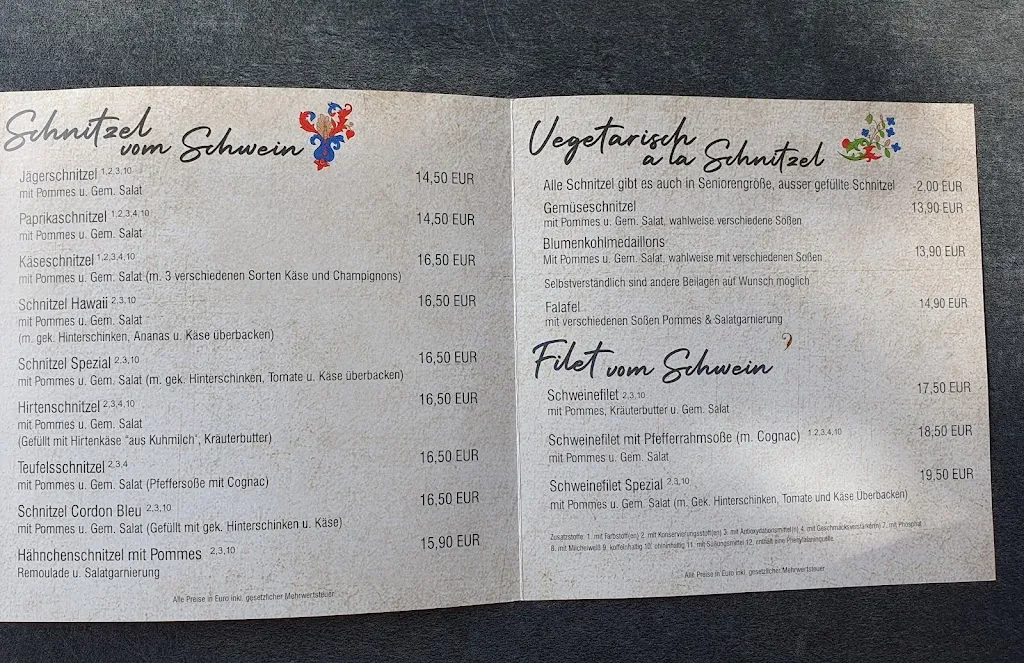 Schnitzel
vom Schwein
Jägerschnitzel 1,2,3,10 14,50 EUR
mit Pommes u. Gem. Salat
Paprikaschnitzel 1,2,3,4,10 14,50 EUR
mit Pommes u. Gem. Salat
Käseschnitzel 1,2,3,4,10 16,50 EUR
mit Pommes u. Gem. Salat (m. 3 verschiedenen Sorten Käse und Champignons)
Schnitzel Hawaii 2,3,10 16,50 EUR
mit Pommes u. Gem. Salat
(m. gek. Hinterschinken, Ananas u. Käse überbacken)
Schnitzel Spezial 2,3,10 16,50 EUR
mit Pommes u. Gem. Salat (m. gek. Hinterschinken, Tomate u. Käse überbacken)
Hirtenschnitzel 2,3,4,10 16,50 EUR
mit Pommes u. Gem. Salat
(Gefüllt mit Hirtenkäse "aus Kuhmilch", Kräuterbutter)
Teufelsschnitzel 2,3,4 16,50 EUR
mit Pommes u. Gem. Salat (Pfeffersoße mit Cognac)
Schnitzel Cordon Bleu 2,3,10 16,50 EUR
mit Pommes u. Gem. Salat (Gefüllt mit gek. Hinterschinken u. Käse)
Hähnchenschnitzel mit Pommes 2,3,10 15,90 EUR
Remoulade u. Salatgarnierung
Alle Preise in Euro inkl. gesetzlicher Mehrwertsteuer
Vegetarisch
a la Schnitzel
Alle Schnitzel gibt es auch in Seniorengröße, ausser gefüllte Schnitzel -2,00 EUR
Gemüseschnitzel 13,90 EUR
mit Pommes u. Gem. Salat, wahlweise verschiedene Soßen
Blumenkohlmedaillons 13,90 EUR
Mit Pommes u. Gem. Salat, wahlweise mit verschiedenen Soßen
Selbstverständlich sind andere Beilagen auf Wunsch möglich
Falafel 14,90 EUR
mit verschiedenen Soßen Pommes & Salatgarnierung
Filet vom Schwein
Schweinefilet 2,3,10 17,50 EUR
mit Pommes, Kräuterbutter u. Gem. Salat
Schweinefilet mit Pfefferrahmsoße (m. Cognac) 1,2,3,4,10 18,50 EUR
mit Pommes u. Gem. Salat
Schweinefilet Spezial 2,3,10 19,50 EUR
mit Pommes u. Gem. Salat (m. Gek. Hinterschinken, Tomate und Käse Überbacken)
Zusatzstoffe: 1. mit Farbstoff(en) 2. mit Konservierungsstoff(en) 3. mit Antioxydationsmittel(n) 4. mit Geschmacksverstärker(n) 7. mit Phosphat
8. mit Milcheiweiß 9. koffeinhaltig 10. chininhaltig 11. mit Süßungsmittel 12. enthält eine Phenylalaninquelle
Alle Preise in Euro inkl. gesetzlicher Mehrwertsteuer